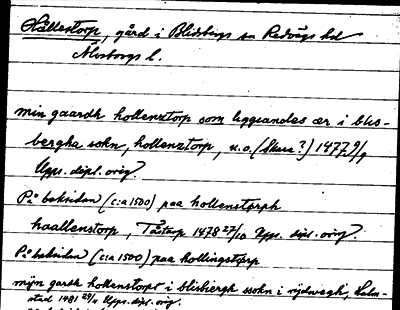 Hållestorp, gård i Blidsbergs sn Redvägs hd
Älvsborgs l.
min gaardh hollenztorp som liggiandes ær i blis-
bergha sokn, hollenztorp, u.o. (Skara?) 1477 9/9
Upps. dipl. orig?
På baksidan (c:a 1500) paa hollenstørph
haallenstorp, Tåstorp 1478 27/10 Upps. dipl. orig?
På baksidan (c:a 1500) paa hollingstørp
mijn gardh hollenstorpt i blisbergh ssokn i rijdwægh, Halm-
stad 1481 29/11 Upps. dipl. orig.